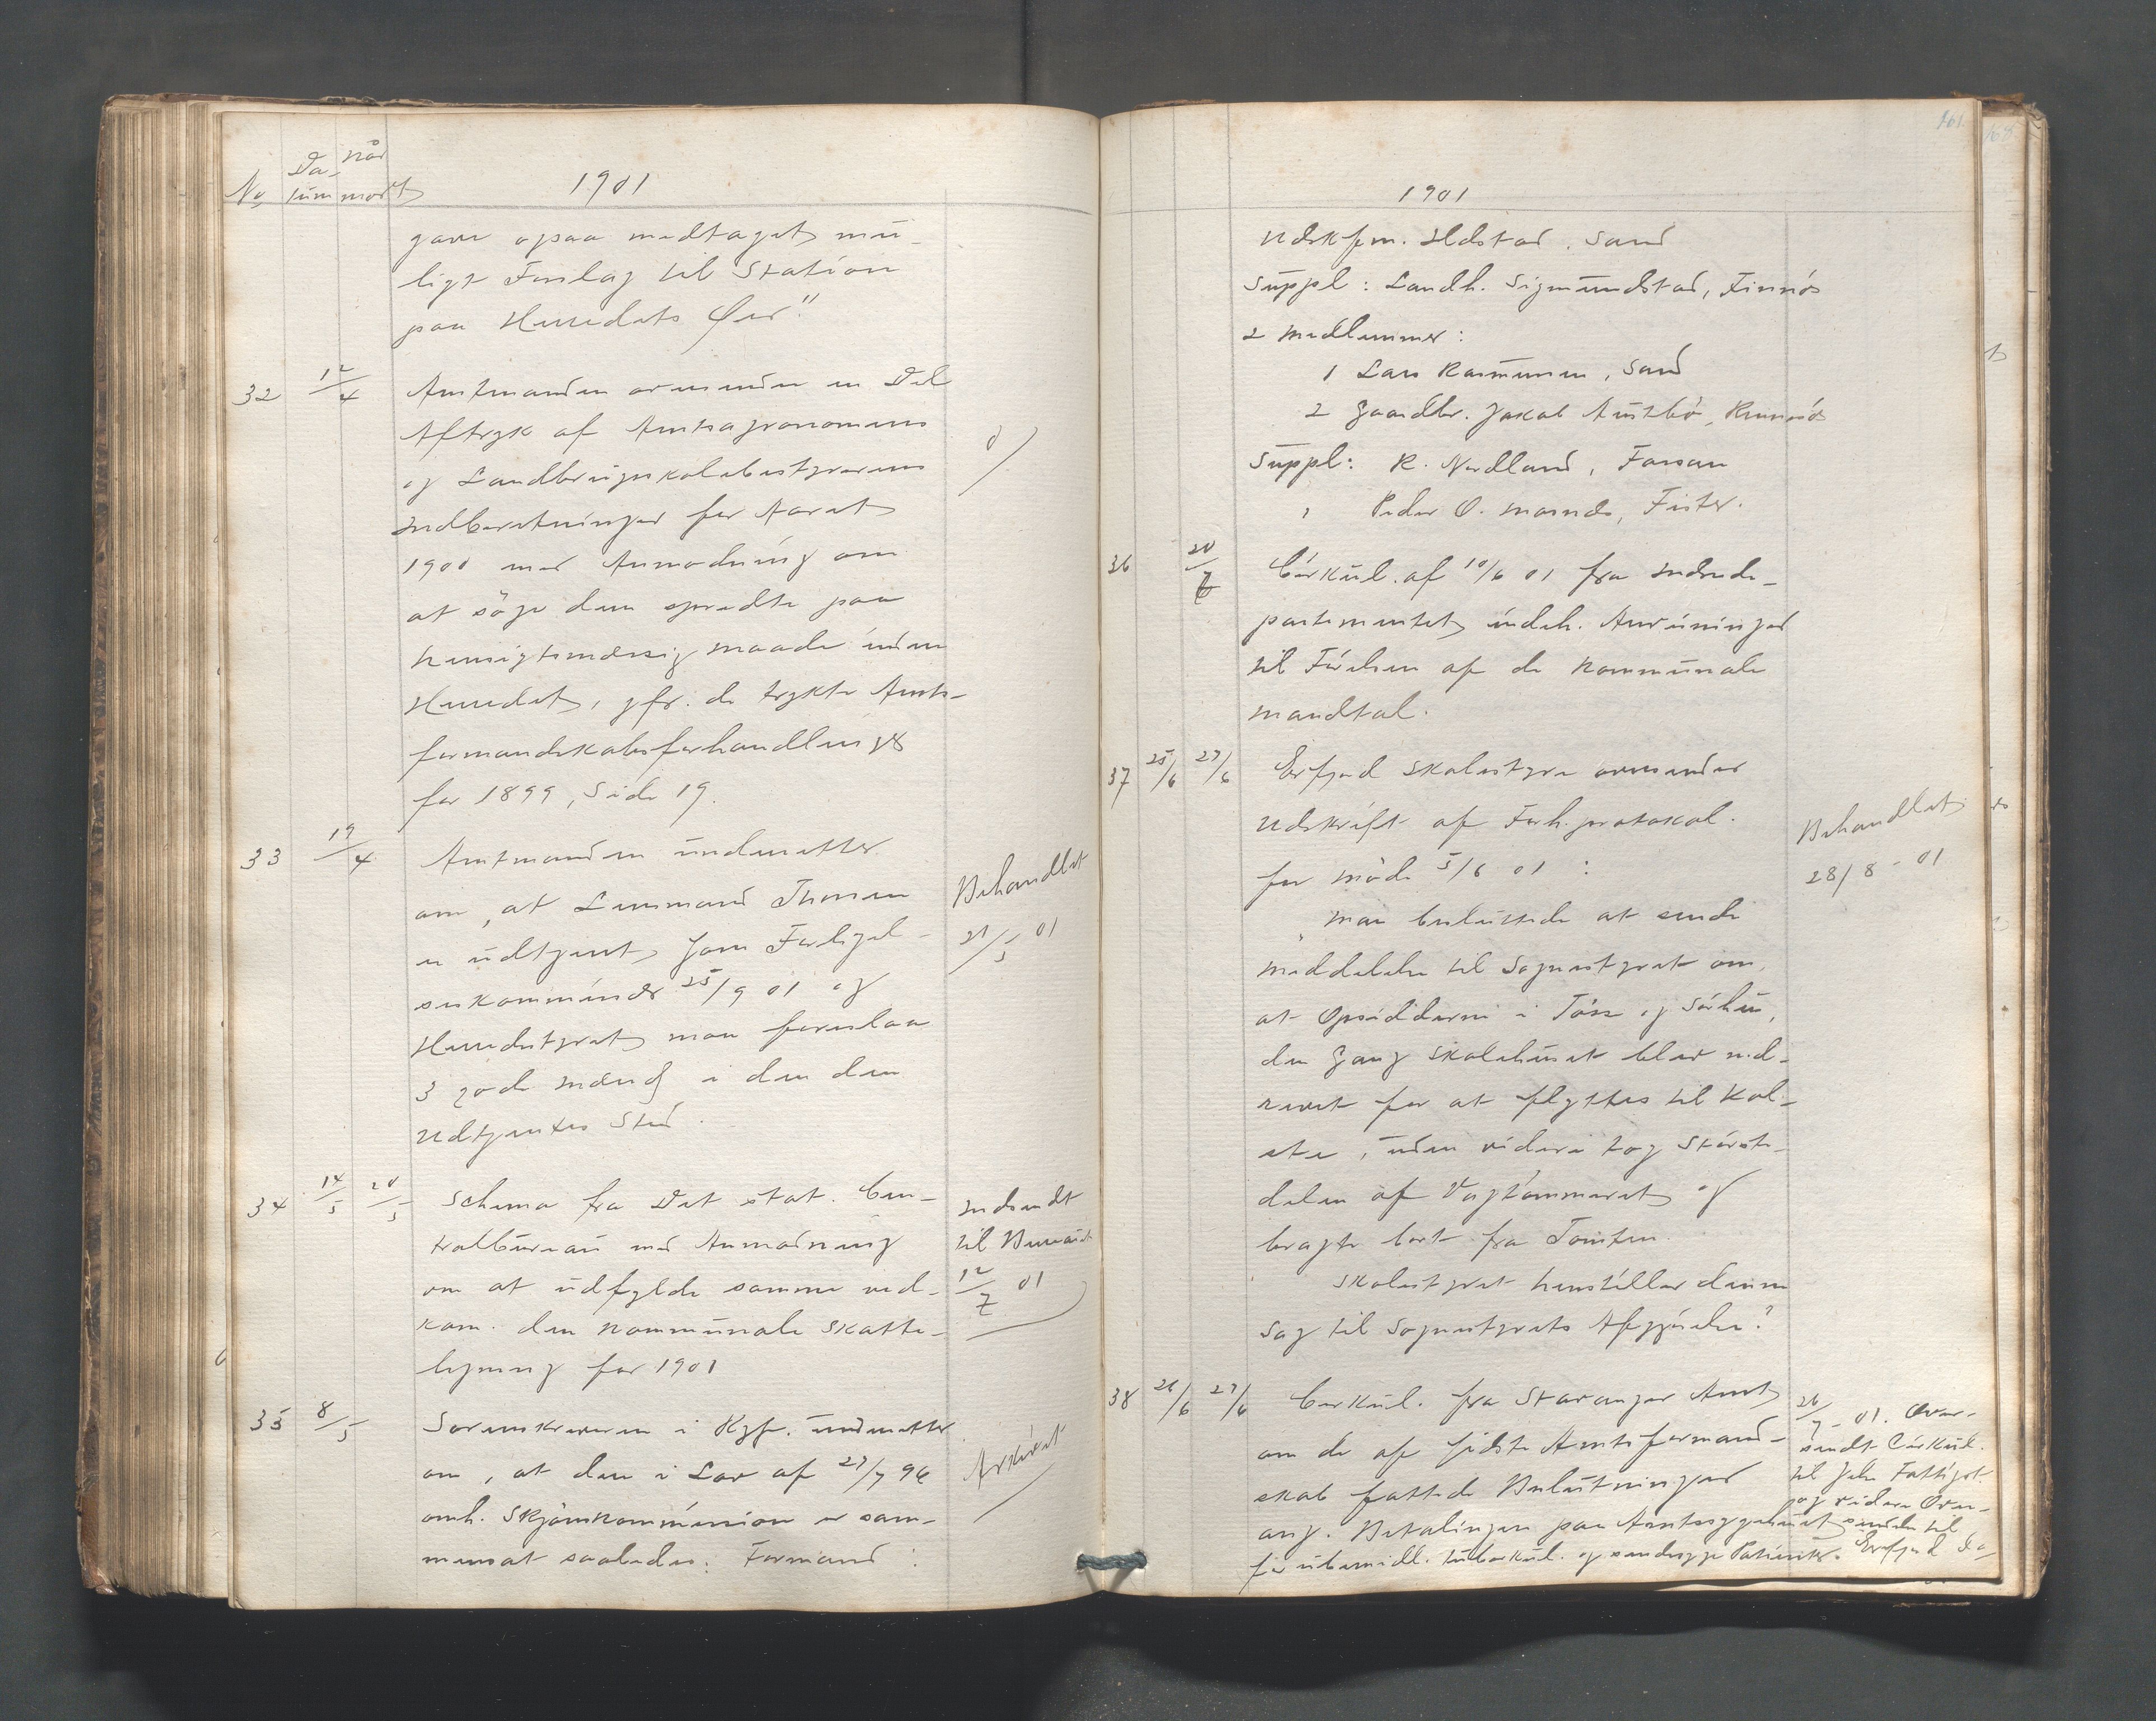 No Da- Når
tum modt 1901
gave ogsaa medtaget mu-
ligt Forslag til Station
paa Herredets Øer."
32 12/4 Amtmanden oversender en Del
Aftryk af Amtsagronomens
og Landbrugsskolebestyrerens
Indberetninger for Aaret
1900 med Anmodning om
at søge dem spredte paa
hensigtsmæssig Maade inden
Herredet, jfr. de trykte Amts-
formandskabsforhandlinger
for 1899, Side 19.
33 19/4 Amtmanden underretter
om, at Lensmand Thorsen
er udtjent som Forligel-
seskommissær 25/9 01 og
Herredstyret maa foreslaa
3 gode Mænd i den den
Udtjentes Sted.
Behandlet
21/5 01
34 14/5 20/5 Schema fra Det stat. Cen-
tralbureau med Anmodning
om at udfylde samme ved-
kom. den kommunale Skatte-
ligning for 1901
Indsendt
til Bureauet
12/7 01
35 8/5 Sorenskriveren i Ryf. underretter
om, at den i Lov af 27/7 96
omh. Skjønskommission er sam-
mensat saaledes: Formand:
Arkivet
161
1901
Udskfm. Ildstad, Sand
Suppl: Landh. Sigmundstad, Finnø
2 Medlemmer:
1 Lars Rasmussen, Sand
2 Gaardbr. Jakob Austbø, Rennesø
Suppl: R. Nordland, Forsan
Peder O. Fister.
36 20/7 Cirkul. af 10/6 01 fra Indrede-
partementet, indeh. Anvisninger
til Førelsen af de kommunale
Mandtal.
37 25/6 27/6 Erfjord Skolestyre oversender
Udskrift af Forh.protokol.
for Møde 5/6 01:
"Man besluttede at sende
Meddelelse til Sognestyret om,
at Opsidderne i Tøsse og Sørhus,
den Gang Skolehuset blev ned-
revet for at flyttes til Kol-
, uden videre tog Største-
delen af Vagtømmeret og
bragte bort fra Tomten.
Skolestyret henstiller denne
Sag til Sognestyrets Afgjørelse."
Behandlet
28/8 - 01
38 26/6 27/6 Cirkul. fra Stavanger Amt
om de af sidste Amtsformand-
skab fattede Beslutninger
ang. Betalingen paa Amtssygehuset
for ubemidl. tuberkul. og sindssyge Patienter.
26/7 - 01. Over-
sendt Cirkul.
til Jelse Fattigst.
og videre Over-
sendes til
Erfjord